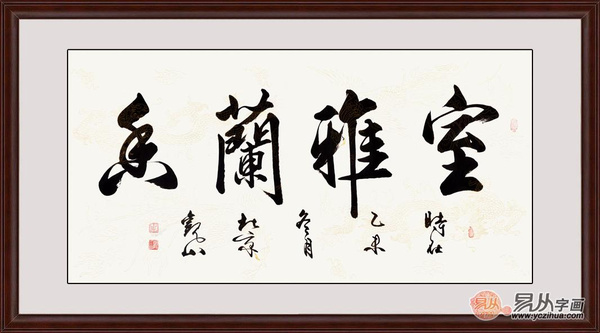 室雅蘭香
時在乙未冬月
易从字画
www.yczihua.com